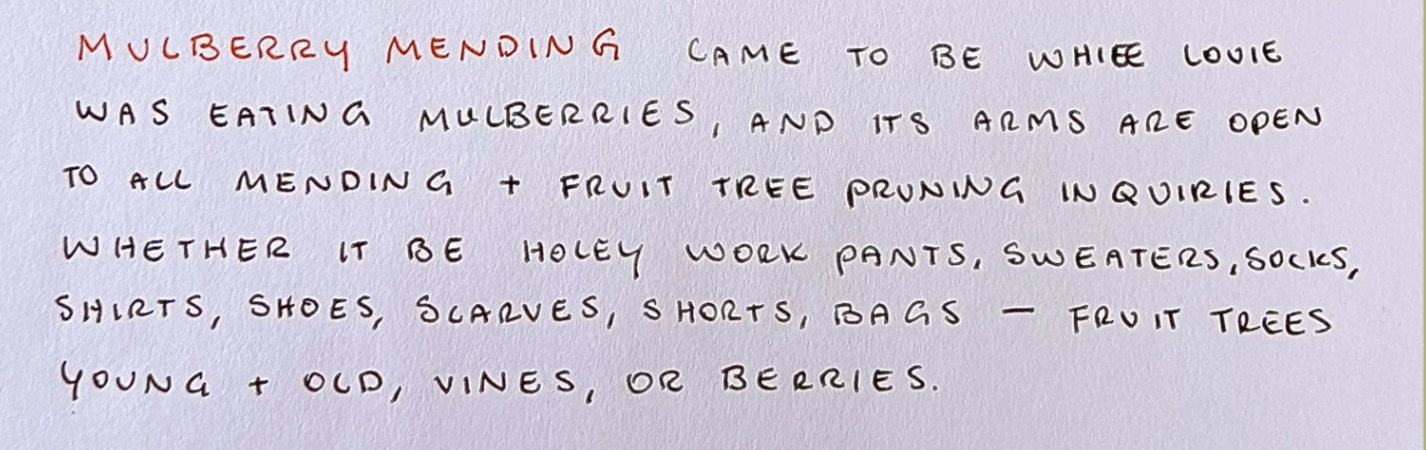 MULBERRY MENDING CAME TO BE WHILE LOUIE
WAS EATING MULBERRIES, AND ITS ARMS ARE OPEN
TO ALL MENDING + FRUIT TREE PRUNING INQUIRIES.
WHETHER IT BE HOLEY WORK PANTS, SWEATERS, SOCKS,
SHIRTS, SHOES, SCARVES, SHORTS, BAGS – FRUIT TREES
YOUNG + OLD, VINES, OR BERRIES.